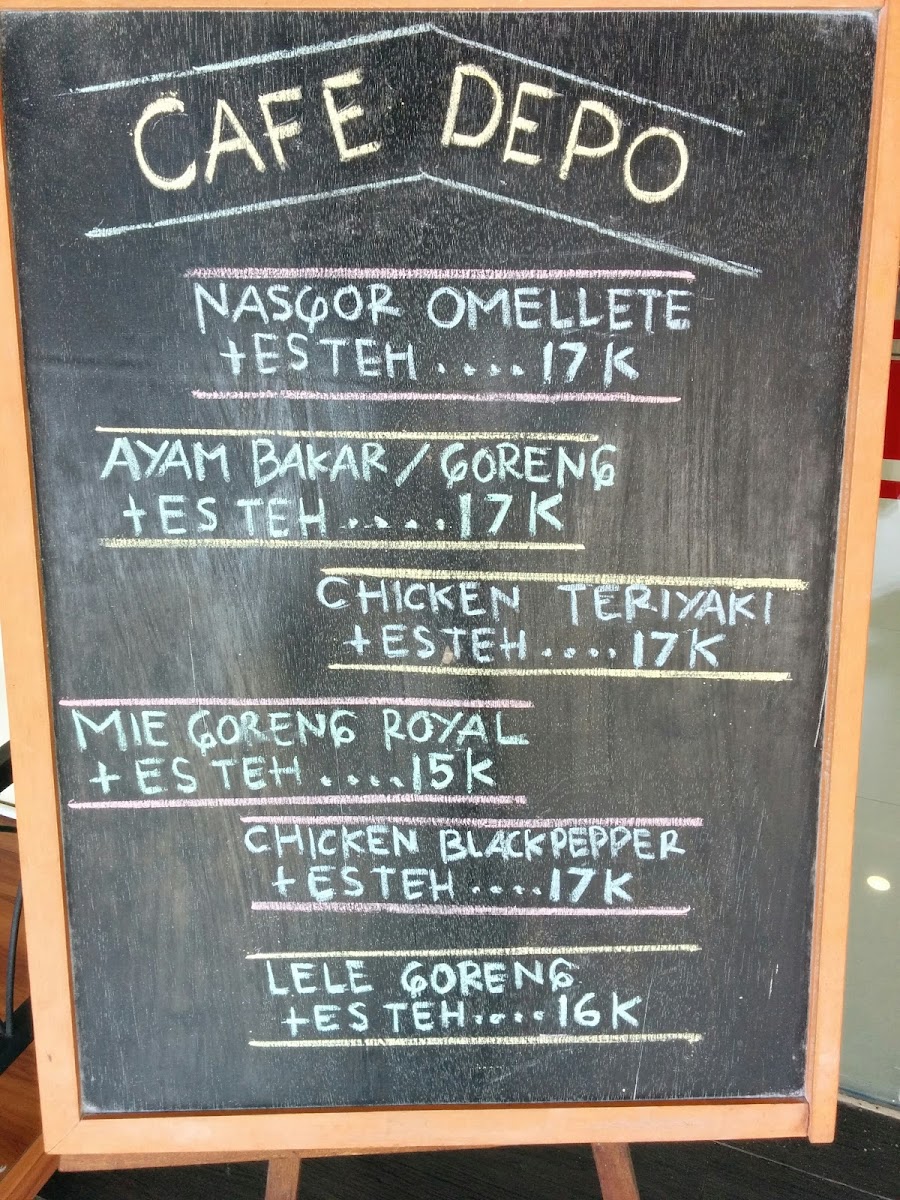 CAFE DEPO
NASGOR OMELLETE
+ ES TEH ....17K
AYAM BAKAR / GORENG
+ ES TEH .....17K
CHICKEN TERIYAKI
+ ES TEH ....17K
MIE GORENG ROYAL
+ ES TEH .....15K
CHICKEN BLACKPEPPER
+ ES TEH ....17K
LELE GORENG
+ ES TEH....16K